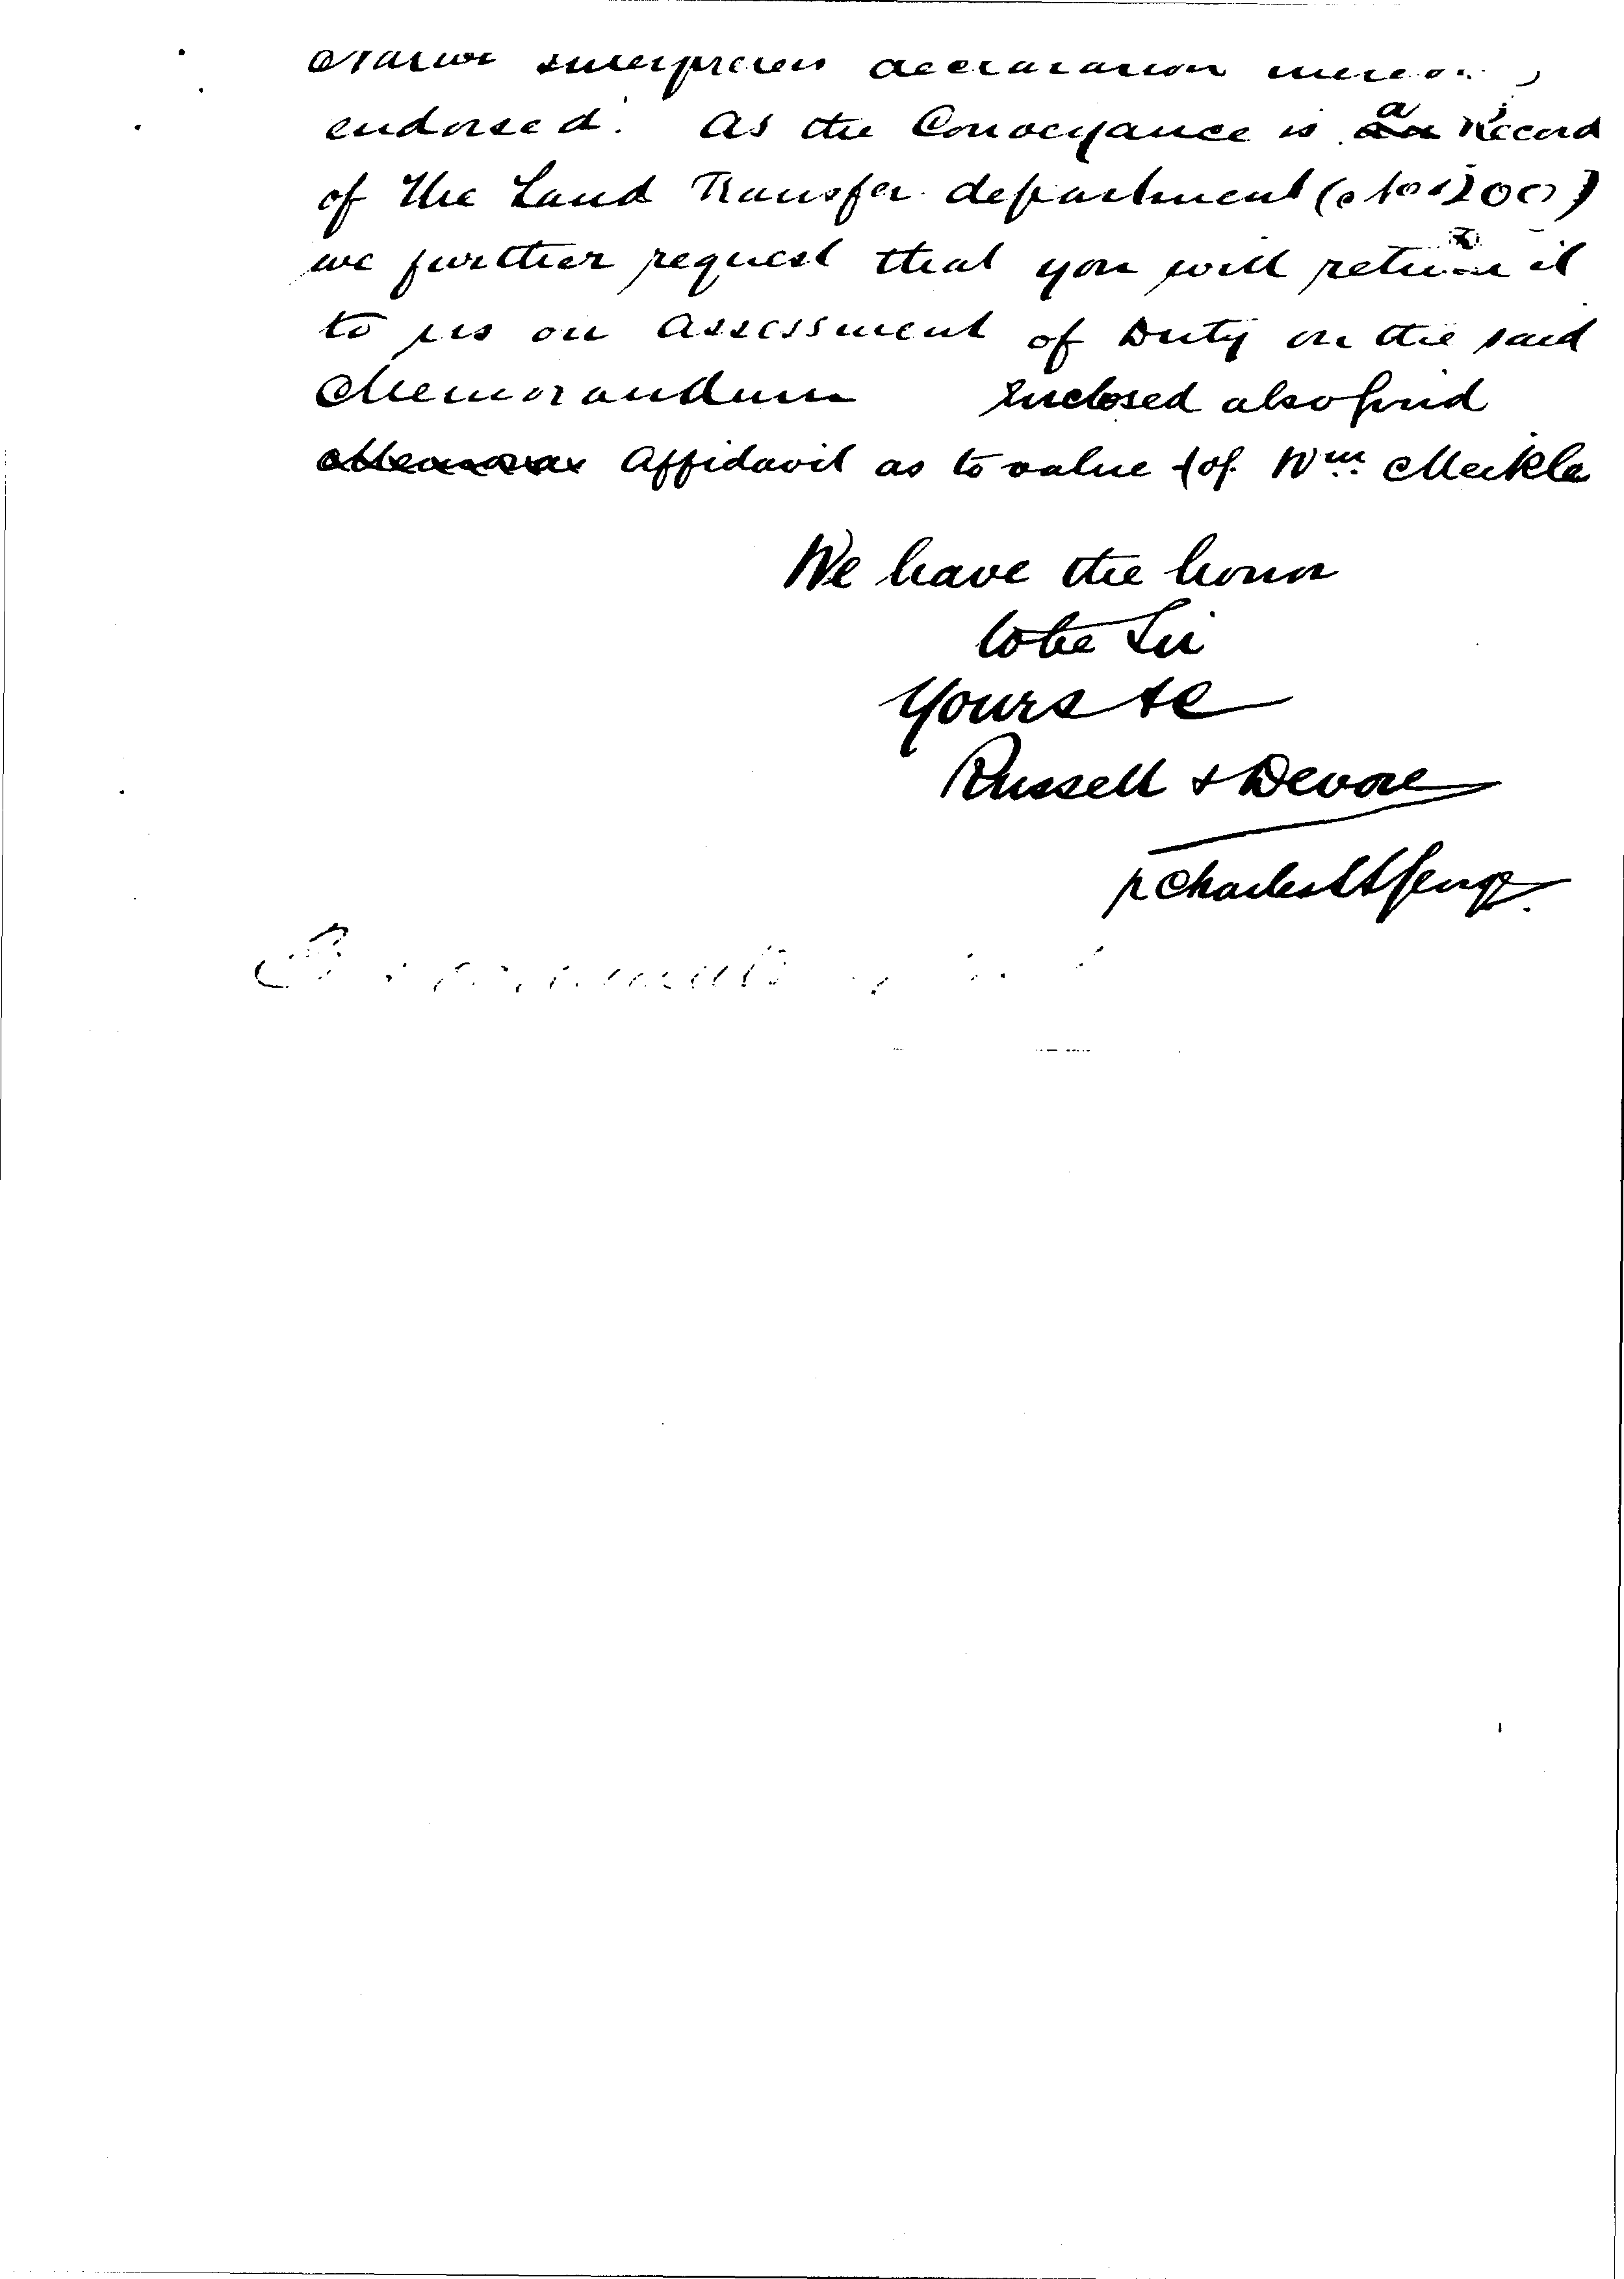 Native Interpreters declaration thereon
endorsed. As the Conveyance is a Record
of the Land Transfer department
we further request that you will return it
to us on Assessment of Duty on the said
Memorandum Enclosed also find
Affidavit as to value of Wm. Meikle
We have the honor
to be Sir
Yours &c
Russell & Devore
p Charles